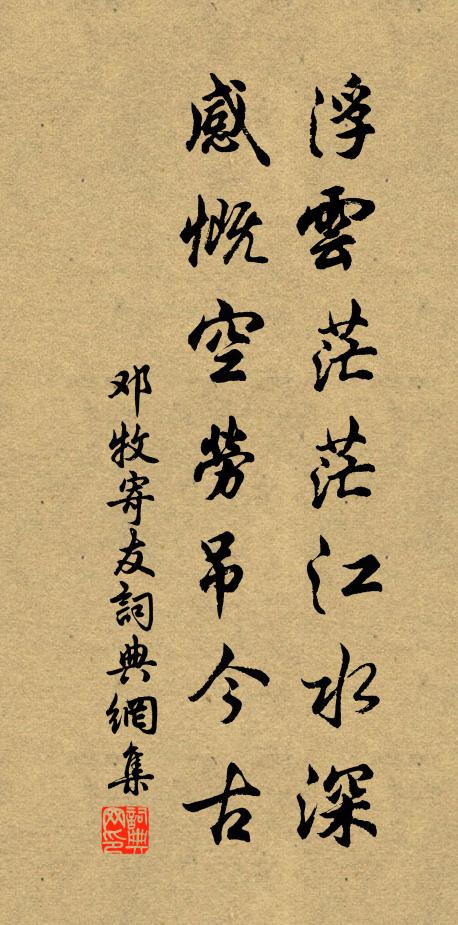 浮雲茫茫江水深
感慨空勞吊今古
邓牧寄友詞典網集
詞典网印